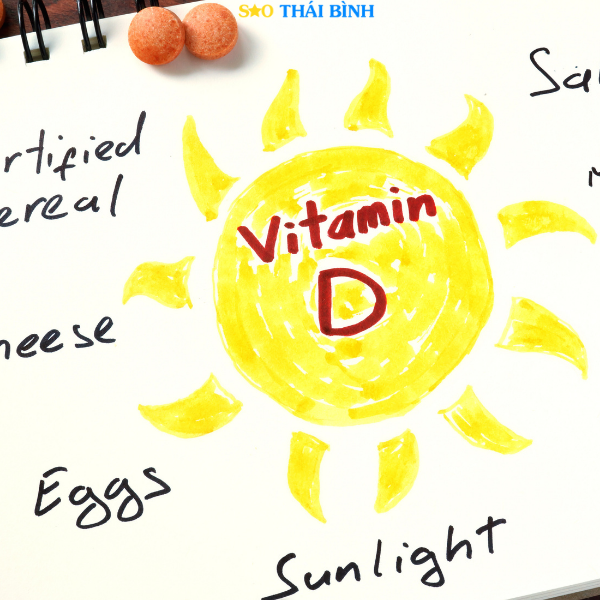 SAO THÁI BÌNH
rtified
ereal
Vitamin
D
heese
Eggs
Sunlight